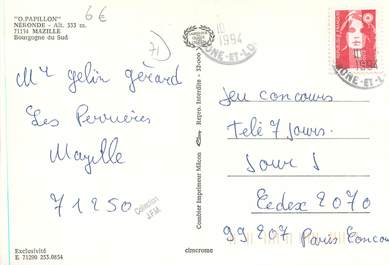 "O. PAPILLON"
NERONDE - Alt. 333 m.
71154 MAZILLE
Bourgogne du Sud
6€
71
Mr gelin gérard
Les Perrières
Mazille
71250
Collection
J.F.M.
Exclusivité
E 71290 253.0854
Combier Imprimeur Mâcon
Repro. Interdite
cimcrome
1994
ONE-ET-LO
1994
ONE-ET-LO
Jeu concours
Télé 7 Jours.
Jour J
Cedex 2070
99207 Paris Concou